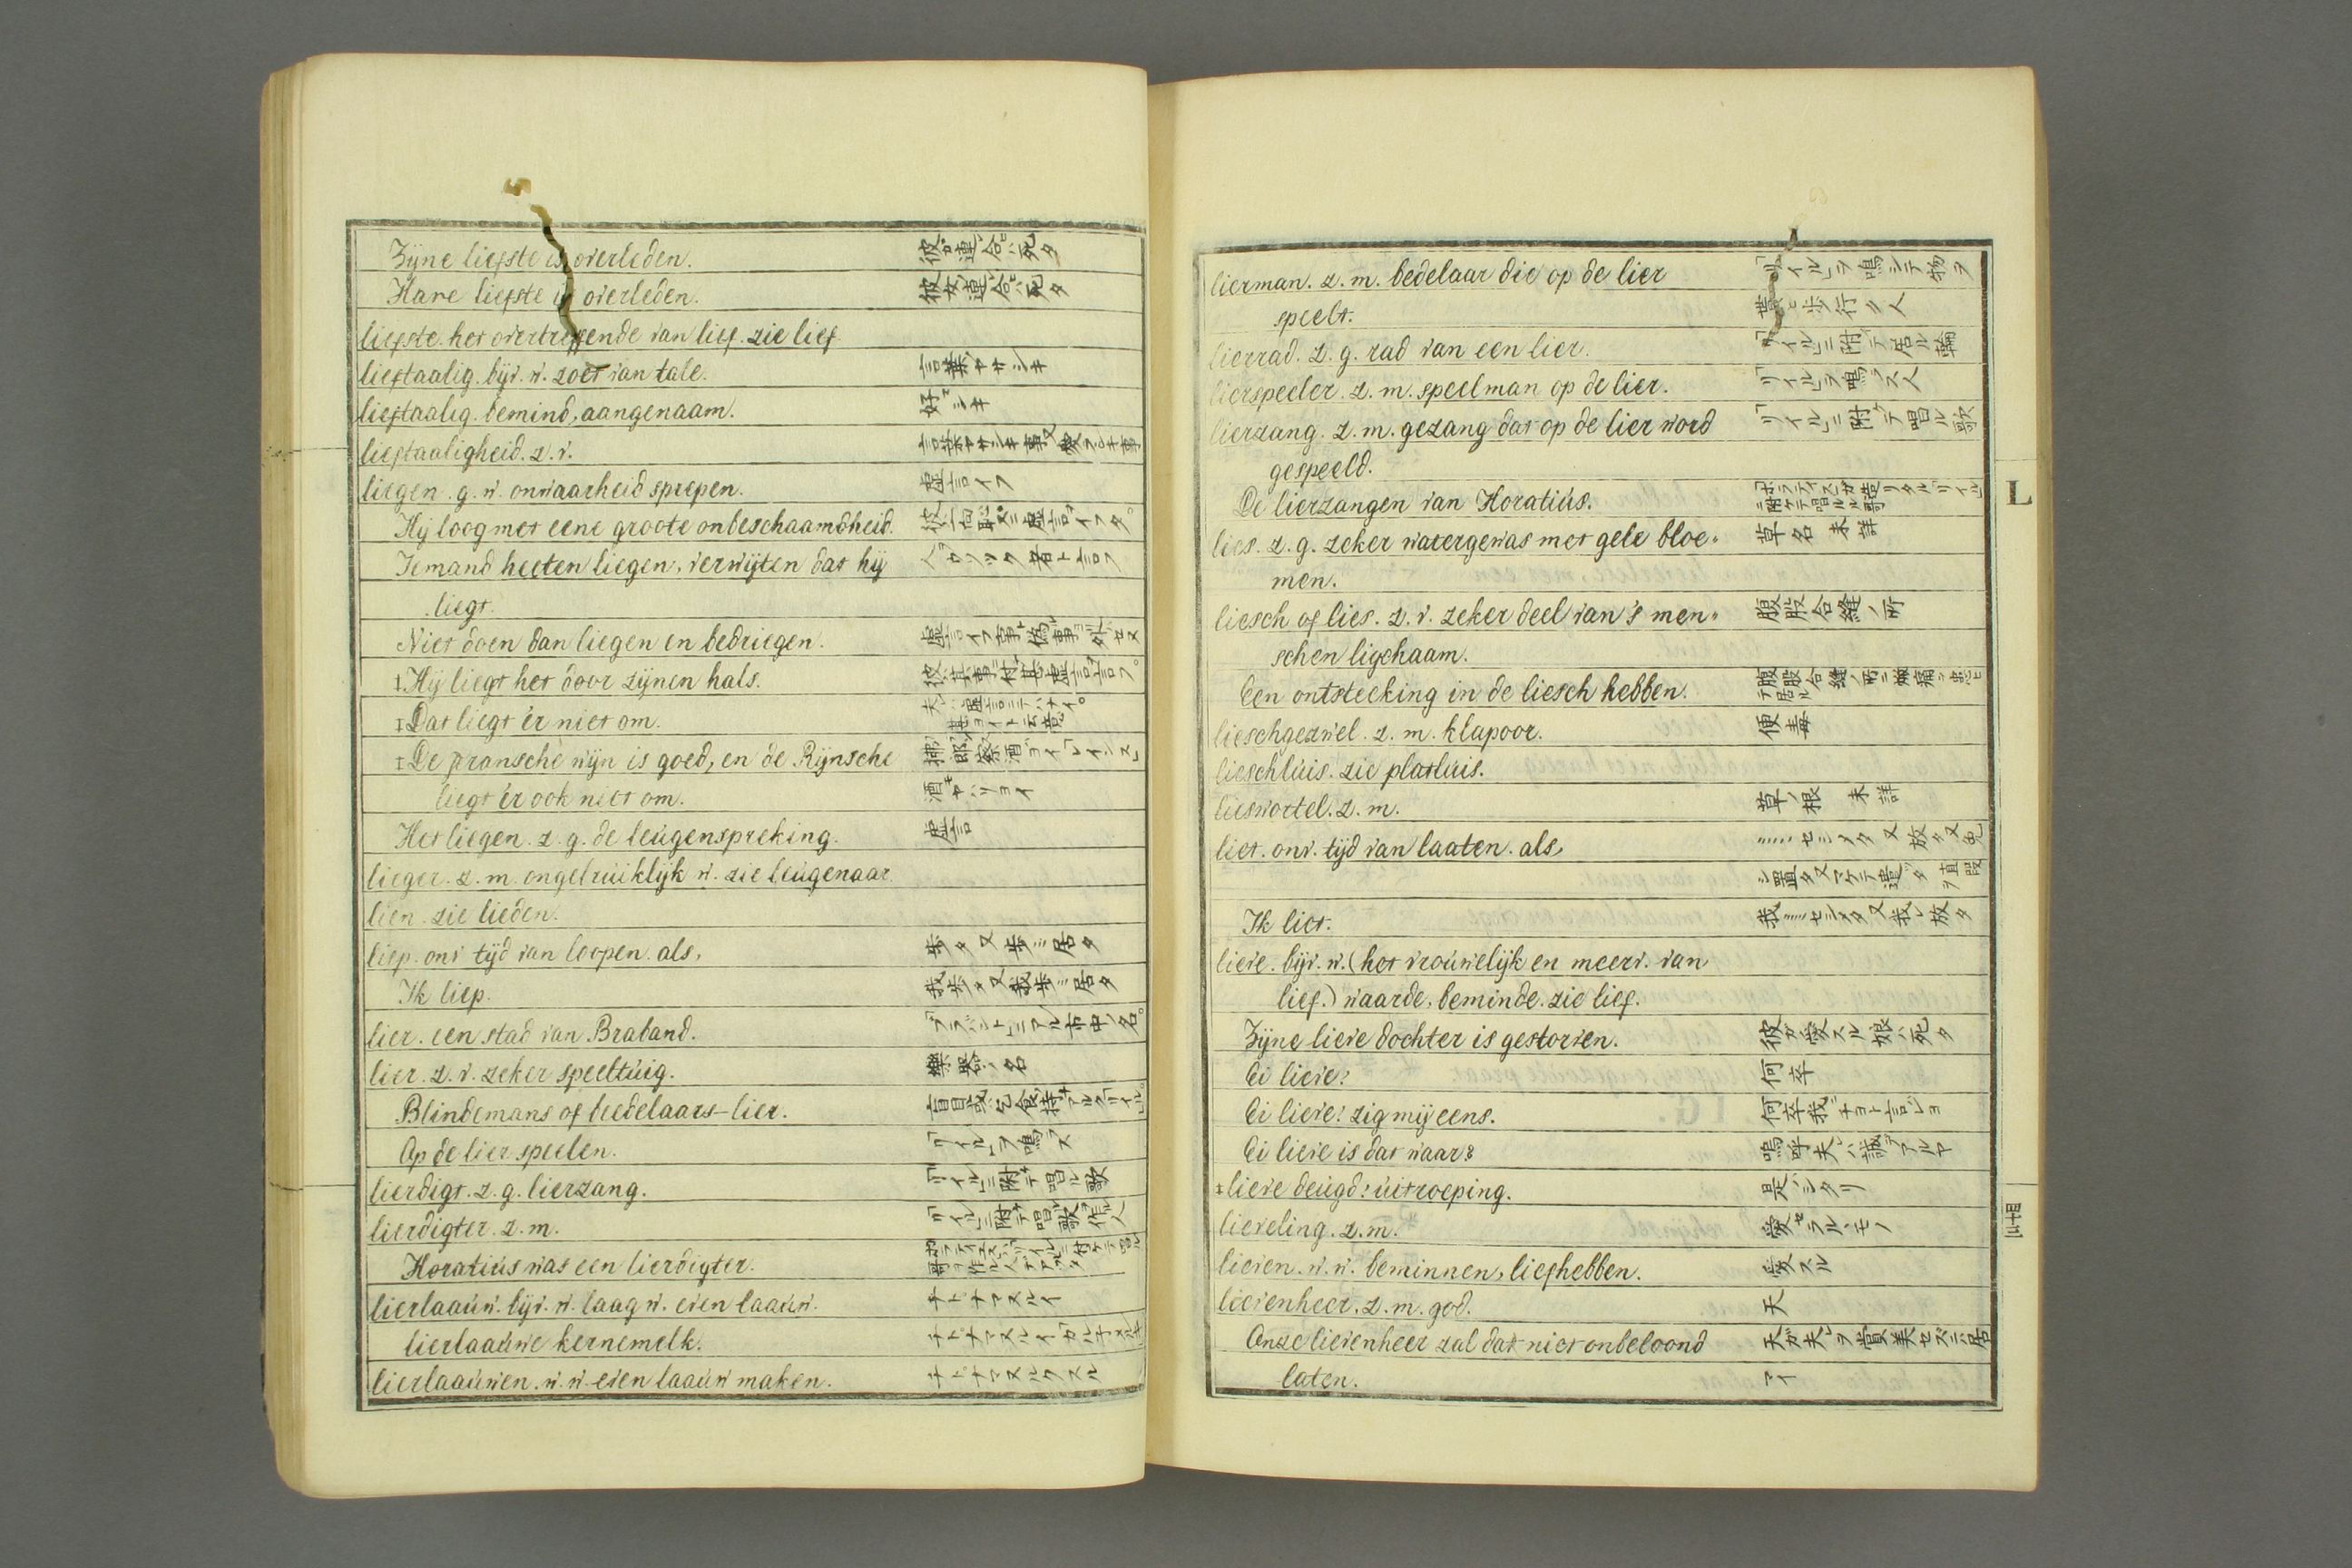 Zijne liefste is overleden. 彼ノ連合ハ死タ
Hare liefste is overleden. 彼女連合ハ死タ
liefste. het overtreffende van lief. zie lief.
lieftaalig. bijv. w. zoet van tale. 言葉ヤサシキ
lieftaalig. bemind, aangenaam. 好マシキ
lieftaaligheid. z. v. 言葉ヤサシキ事又
liegen. g. w. onwaarheid spreken. 虚言イフ
Hij loog met eene groote onbeschaamdheid. 彼一向恥ズニ虚言イフタ。
Iemand heeten liegen, verwijten dat hij 言フ
liegt.
Niet doen dan liegen en bedriegen. 虚言イフ事ト偽事外セヌ
‡Hij liegt het door zijnen hals. 彼其事ニ付甚虚言言フ。
‡Dat liegt 'er niet om. 夫ハ虚言ニテハナイ。甚ヨイト云意
‡De fransche wijn is goed, en de Rijnsche 拂郎察酒ヨイ「レインス」
liegt 'er ook niet om. 酒モヤハリヨイ
Het liegen. z. g. de leugenspreking. 虚言
lieger. z. m. ongebruiklijk w. zie leugenaar.
lien. zie lieden.
liep. onv. tijd van loopen. als, 歩タ又歩ミ居タ
Ik liep. 我歩タ又我歩ミ居タ
lier. een stad van Braband. 「ブラバント」ニアル市中ノ名。
lier. z. v. zeker speeltuig. 樂器ノ名
Blindemans of beedelaars-lier. 盲目或乞食持アルク「リイル」。
Op de lier speelen. 「リイル」ヲ鳴ス
lierdigt. z. g. lierzang. 「リイル」ニ附テ唱ル歌
lierdigter. z. m. 「リイル」ニ附テ唱歌作人
Horatius was een lierdigter.
lierlaauw. bijv. w. laag w. even laauw. チトナマヌルイ
lierlaauwe kernemelk.
lierlaauwen. w. w. even laauw maken. チトナマヌルクスル
lierman. z. m. bedelaar die op de lier 「リイル」ヲ鳴シテ物ヲ
speelt. 貰ヒ歩行ク人
lierrad. z. g. rad van een lier. 「リイル」ニ附テ居ル輪
lierspeeler. z. m. speelman op de lier. 「リイル」ヲ鳴ス人
lierzang. z. m. gezang dat op de lier word 「リイル」ニ附テ唱ル歌
gespeeld.
De lierzangen van Horatius. 「ホラティユス」ガ造リタル「リイル」ニ附テ唱ル歌
lies. z. g. zeker watergewas met gele bloe= 草名 未詳
men.
liesch of lies. z. v. zeker deel van 's men= 腹股合縫ノ所
schen ligchaam.
Een ontsteeking in de liesch hebben. 腹股合縫ノ所ニ焮痛ヲ患ヒテ居ル
lieschgezwel. z. m. klapoor. 便毒
lieschluis. zie platluis.
lieswortel. z. m. 草ノ根 未詳
liet. onv. tijd van laaten. als, セシメタ又放タ又免
シ置タ又
Ik liet. 我セシメタ又我レ放タ
lieve. bijv. w. (het vrouwelijk en meerv. van
lief.) waarde, beminde. zie lief.
Zijne lieve dochter is gestorven. 彼ガ愛スル娘ハ死タ
Ei lieve! 何卒
Ei lieve! zig mij eens. 何卒我ニチョト言ヒヨ
Ei lieve is dat waar? 嗚呼夫ハ誠デアルヤ
‡lieve deugd! uitroeping. 是ハシタリ
lieveling. z. m. 愛セラルヽモノ
lieven. w. w. beminnen, liefhebben. 愛スル
lievenheer. z. m. god. 天
Onze lievenheer zal dat niet onbeloond 天ガ夫レヲ賞美セズニハ居
laten. マイ
L
四十三